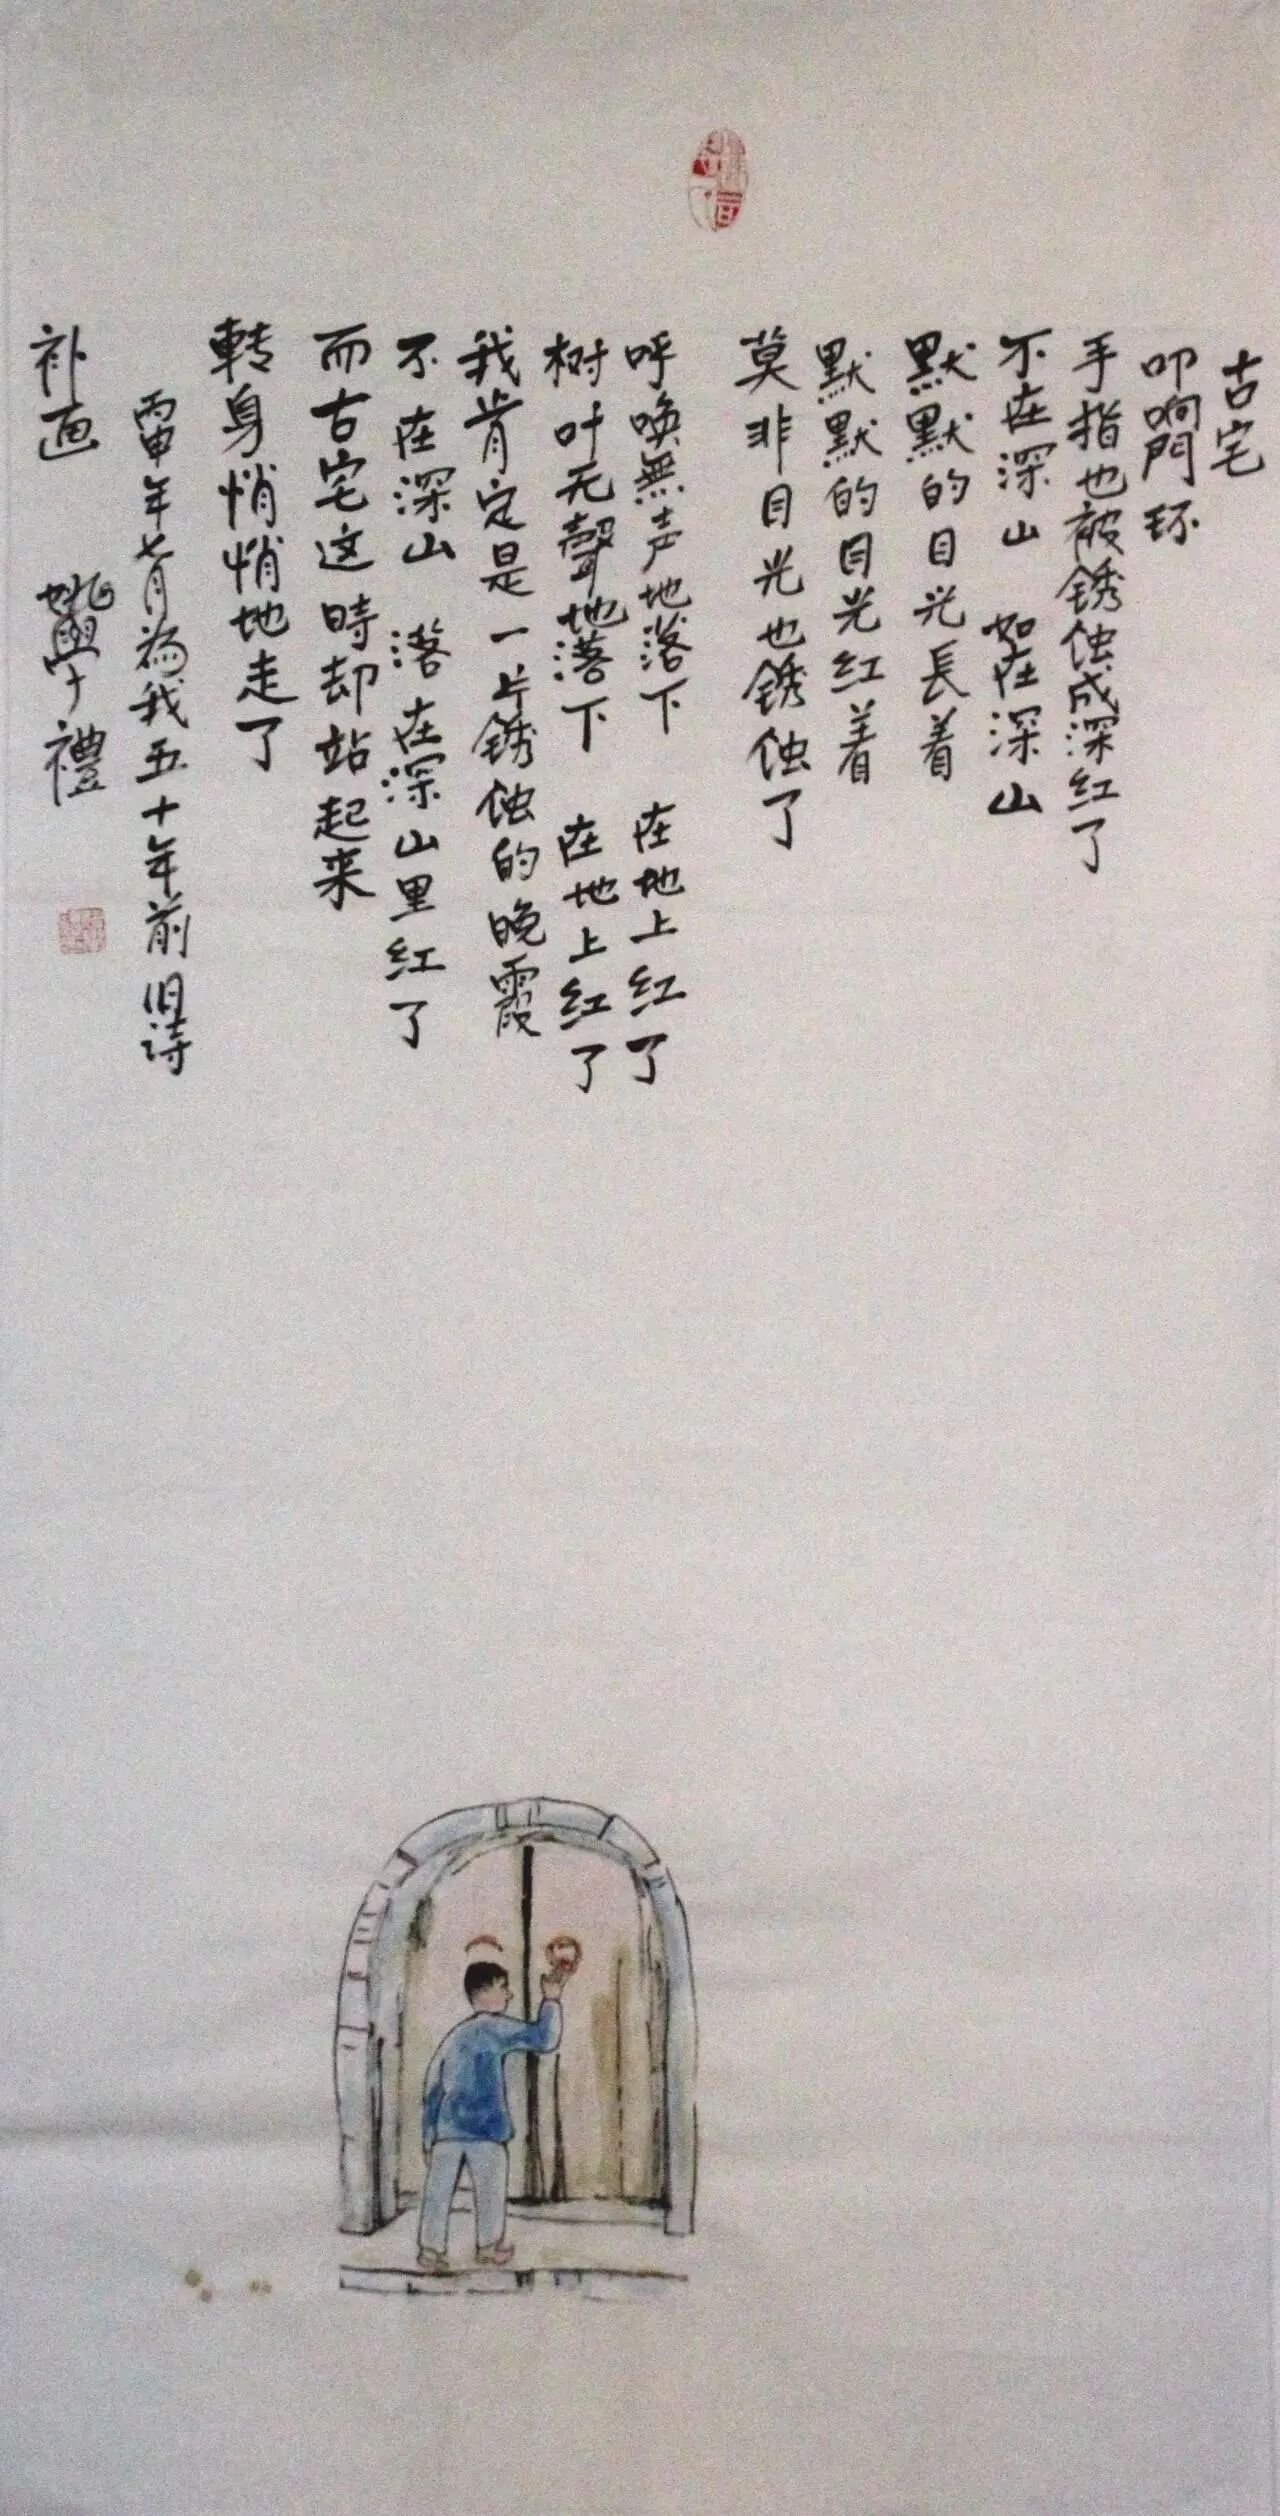 古宅
叩响門环
手指也被锈蚀成深红了
不在深山 如在深山
默默的目光長着
默默的目光红着
莫非目光也锈蚀了
呼唤無声地落下 在地上红了
树叶无聲地落下 在地上红了
我肯定是一片锈蚀的晚霞
不在深山 落在深山里红了
而古宅这時却站起来
轉身悄悄地走了
丙申年七月為我五十年前旧诗
补画 姚學禮